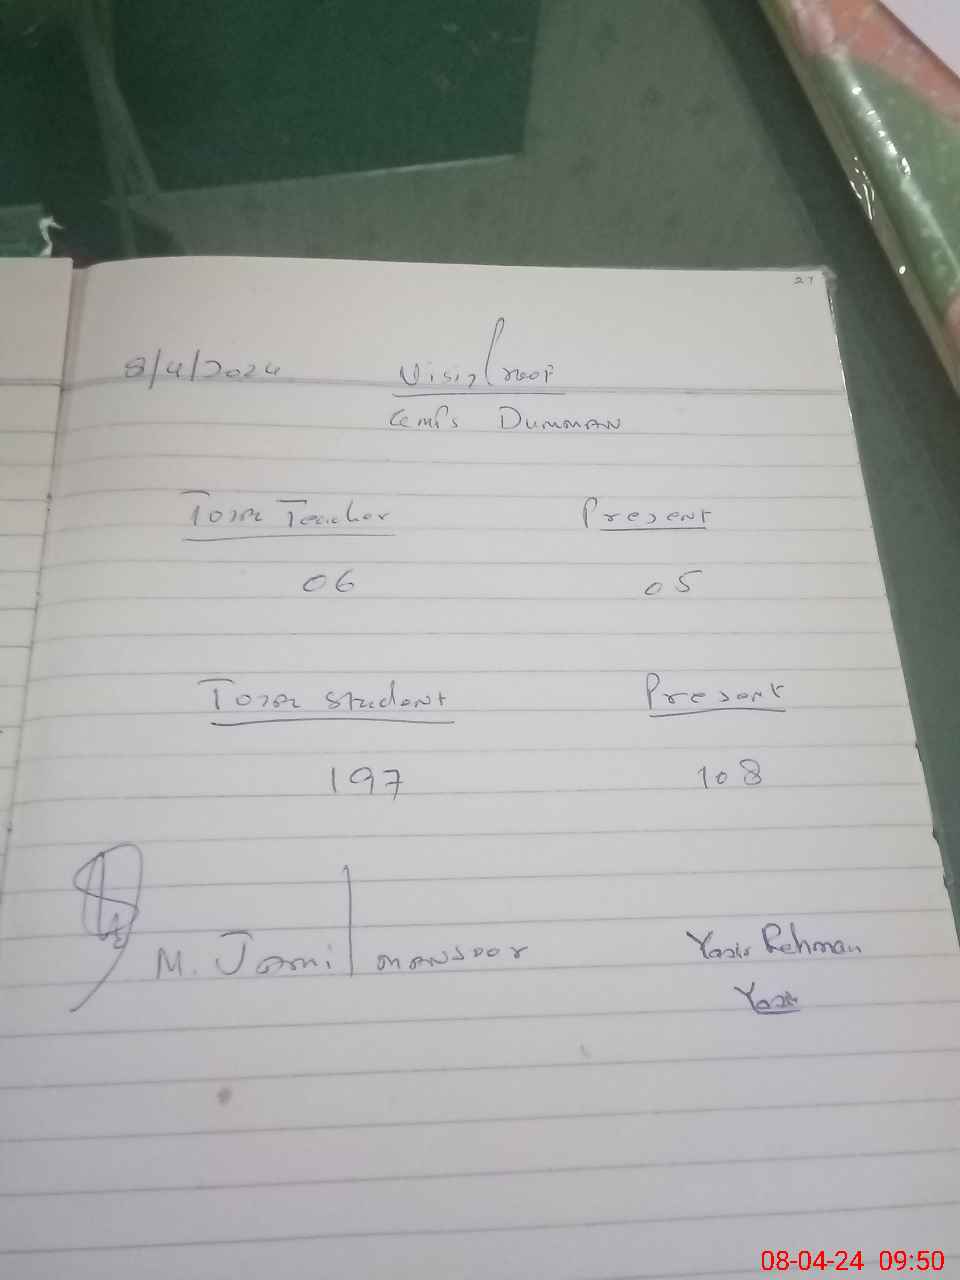 27
8/4/2024
GMPS DUMMAN
Total Teacher Present
06 05
Total Student Present
197 108
M. Jamil MANSOOR Yasir Rehman
Yasir
08-04-24 09:50